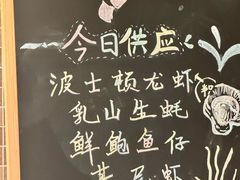 今日供应
波士顿龙虾
乳山生蚝
鲜鲍鱼仔
虾